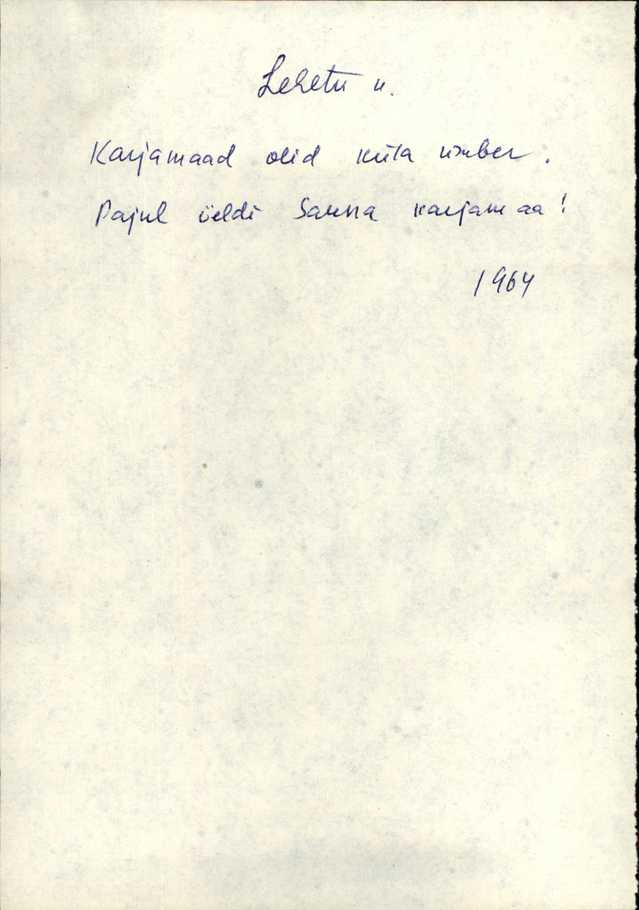 Lehetu k.
Karjamaad olid küla ümber.
Pajul üeldi Sauna karjamaa!
1964